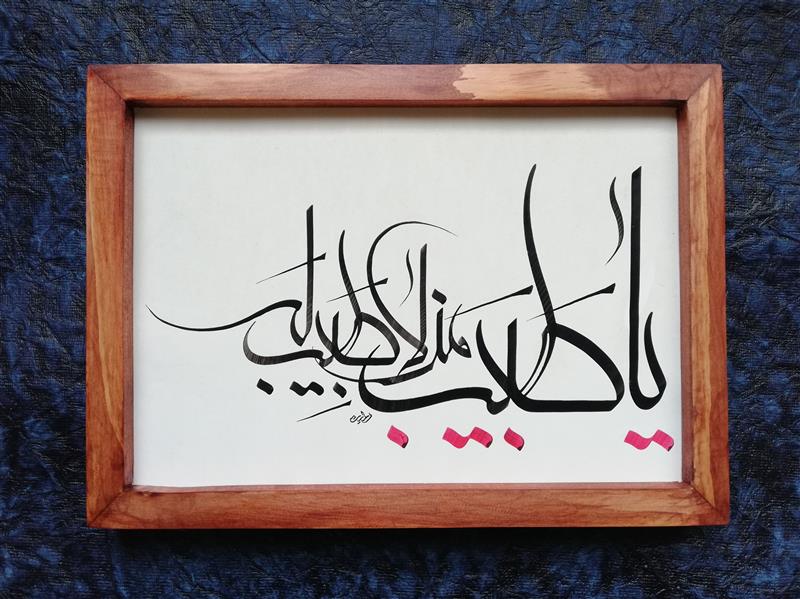 یا طبیب من لا طبیب له